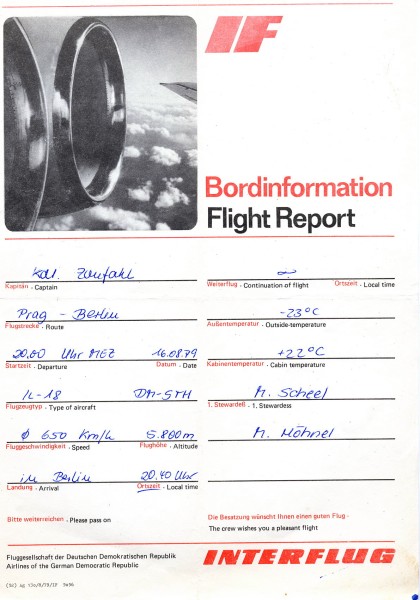 IF
Bordinformation
Flight Report
Kdt. Zaufahl
Kapitän . Captain
Weiterflug . Continuation of flight Ortszeit . Local time
Prag - Berlin
Flugstrecke . Route
-23°C
Außentemperatur . Outside-temperature
20.00 Uhr MEZ 16.08.79
Startzeit . Departure Datum . Date
+22°C
Kabinentemperatur . Cabin temperature
IL-18 DM-STH
Flugzeugtyp . Type of aircraft
M. Scheel
1. Stewardeß . 1. Stewardess
Ø 650 Km/h 5.800m
Fluggeschwindigkeit . Speed Flughöhe . Altitude
M. Höhnel
in Berlin 20.40 Uhr
Landung . Arrival Ortszeit . Local time
Bitte weiterreichen . Please pass on
Die Besatzung wünscht Ihnen einen guten Flug -
The crew wishes you a pleasant flight
Fluggesellschaft der Deutschen Demokratischen Republik
Airlines of the German Democratic Republic
INTERFLUG